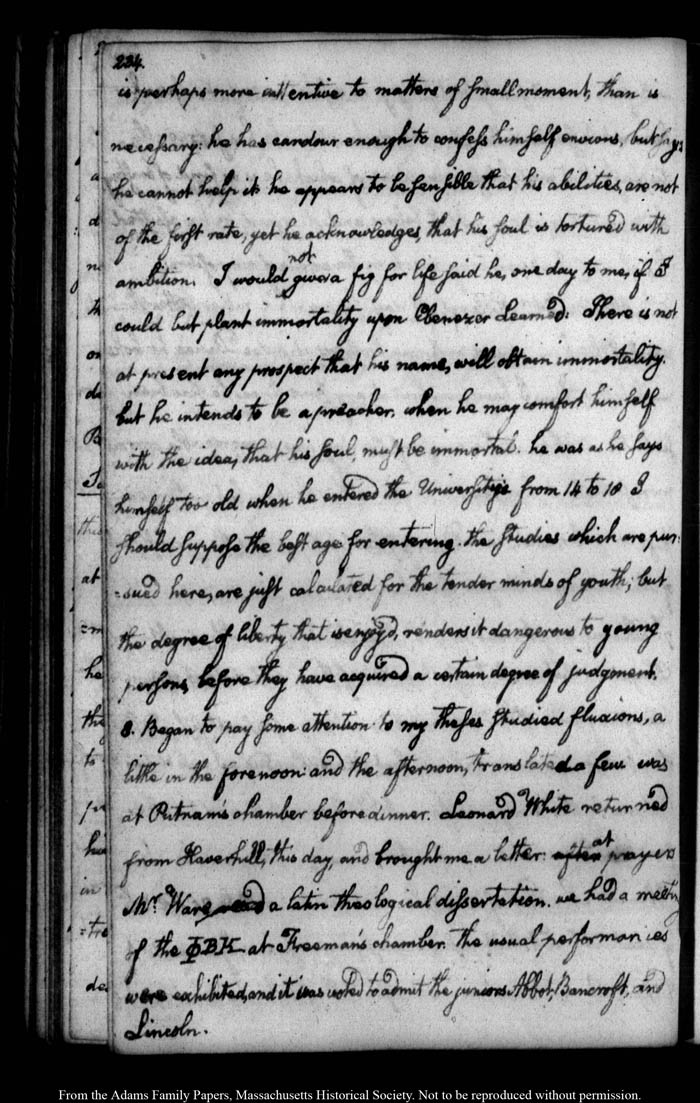 224.
is perhaps more attentive to matters of small moment, than is
necessary: he has candour enough to confess himself envious, but says
he cannot help it: he appears to be sensible that his abilities, are not
of the first rate, yet he acknowledges, that his soul is tortured with
ambition. I would not give a fig for life said he, one day to me, if I
could but plant immortality upon Ebenezer Learned: There is not
at present any prospect that his name, will obtain immortality.
but he intends to be a preacher. when he may comfort himself
with the idea, that his soul, must be immortal. he was as he says
himself too old when he entered the University: from 14 to 18 I
should suppose the best age for entering. the studies which are pur-
=sued here, are just calculated for the tender minds of youth; but
the degree of liberty that is enjoy'd, renders it dangerous to young
persons, before they have acquired a certain degree of judgment.
8. Began to pay some attention to my theses studied fluxions, a
little in the forenoon: and the afternoon, translated a few was
at Putnam's chamber before dinner. Leonard White returned
from Haverhill, this day, and brought me a letter: after at prayers
Mr. Ware read a latin theological dissertation. we had a meeting
of the ΦBK at Freeman's chamber. the usual performances
were exhibited, and it was voted to admit the juniors Abbot, Bancroft, and
Lincoln.
From the Adams Family Papers, Massachusetts Historical Society. Not to be reproduced without permission.